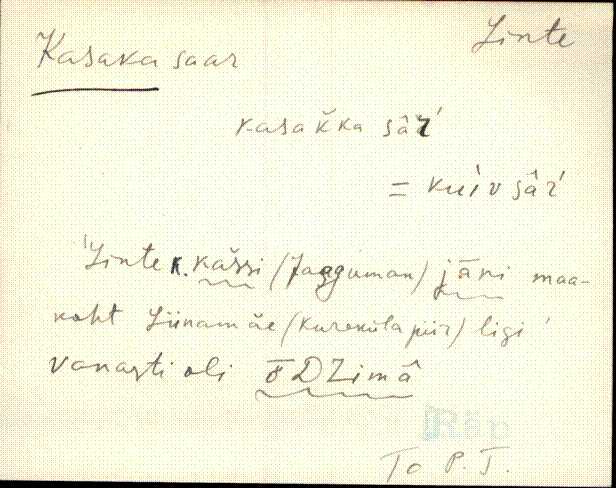 Linte
Kasaka saar
kasak̆ka sâŕ
= kuìv sâŕ
Linte k. kas̆si (Jagguman) jāni maa-
koht Liinamäe (Kureküla piir) ligi
vanasti oli
Räp
To P. T.